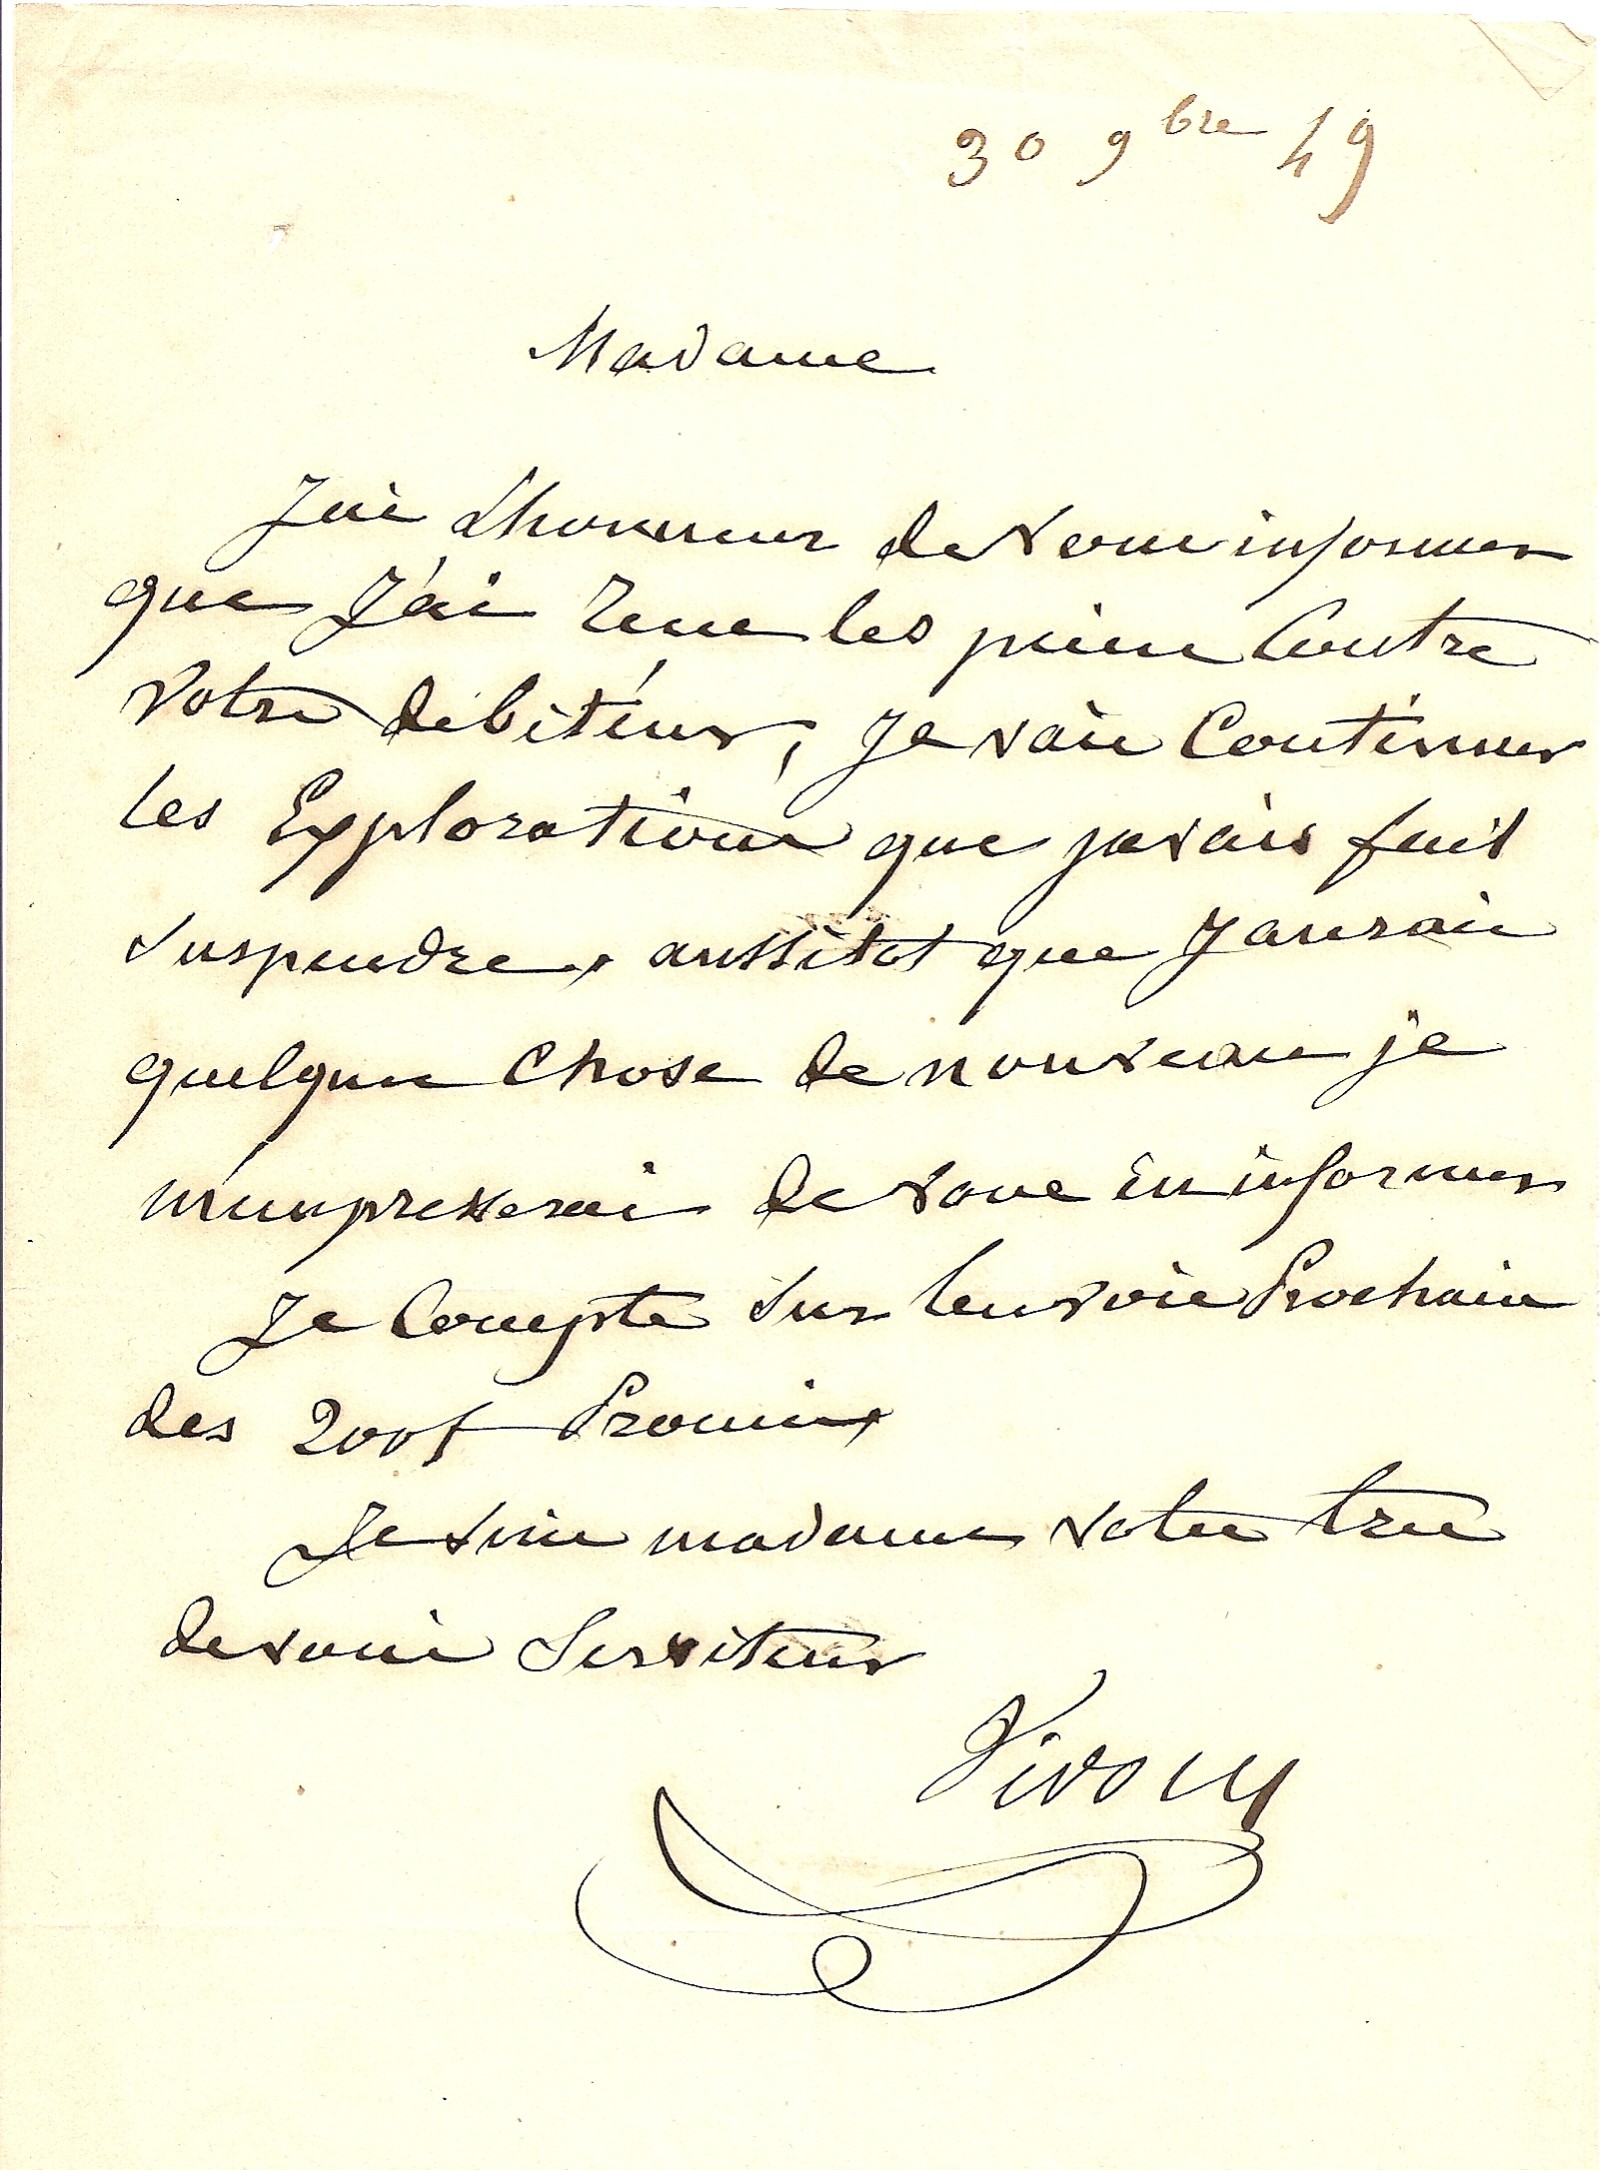 30 9bre 49
Madame
Jai Lhonneur de vous informer
que J'ai Recue les pieces Contre
Votre débiteur, Je vais Continuer
les Explorations que javais fait
suspendre, aussitot que Jaurais
quelque Chose de nouveau je
m'empresserai de vous en informer
Je Compte sur lenvoie Prochain
des 200f Promis,
Je suis madame votre tres
devoué Serviteur